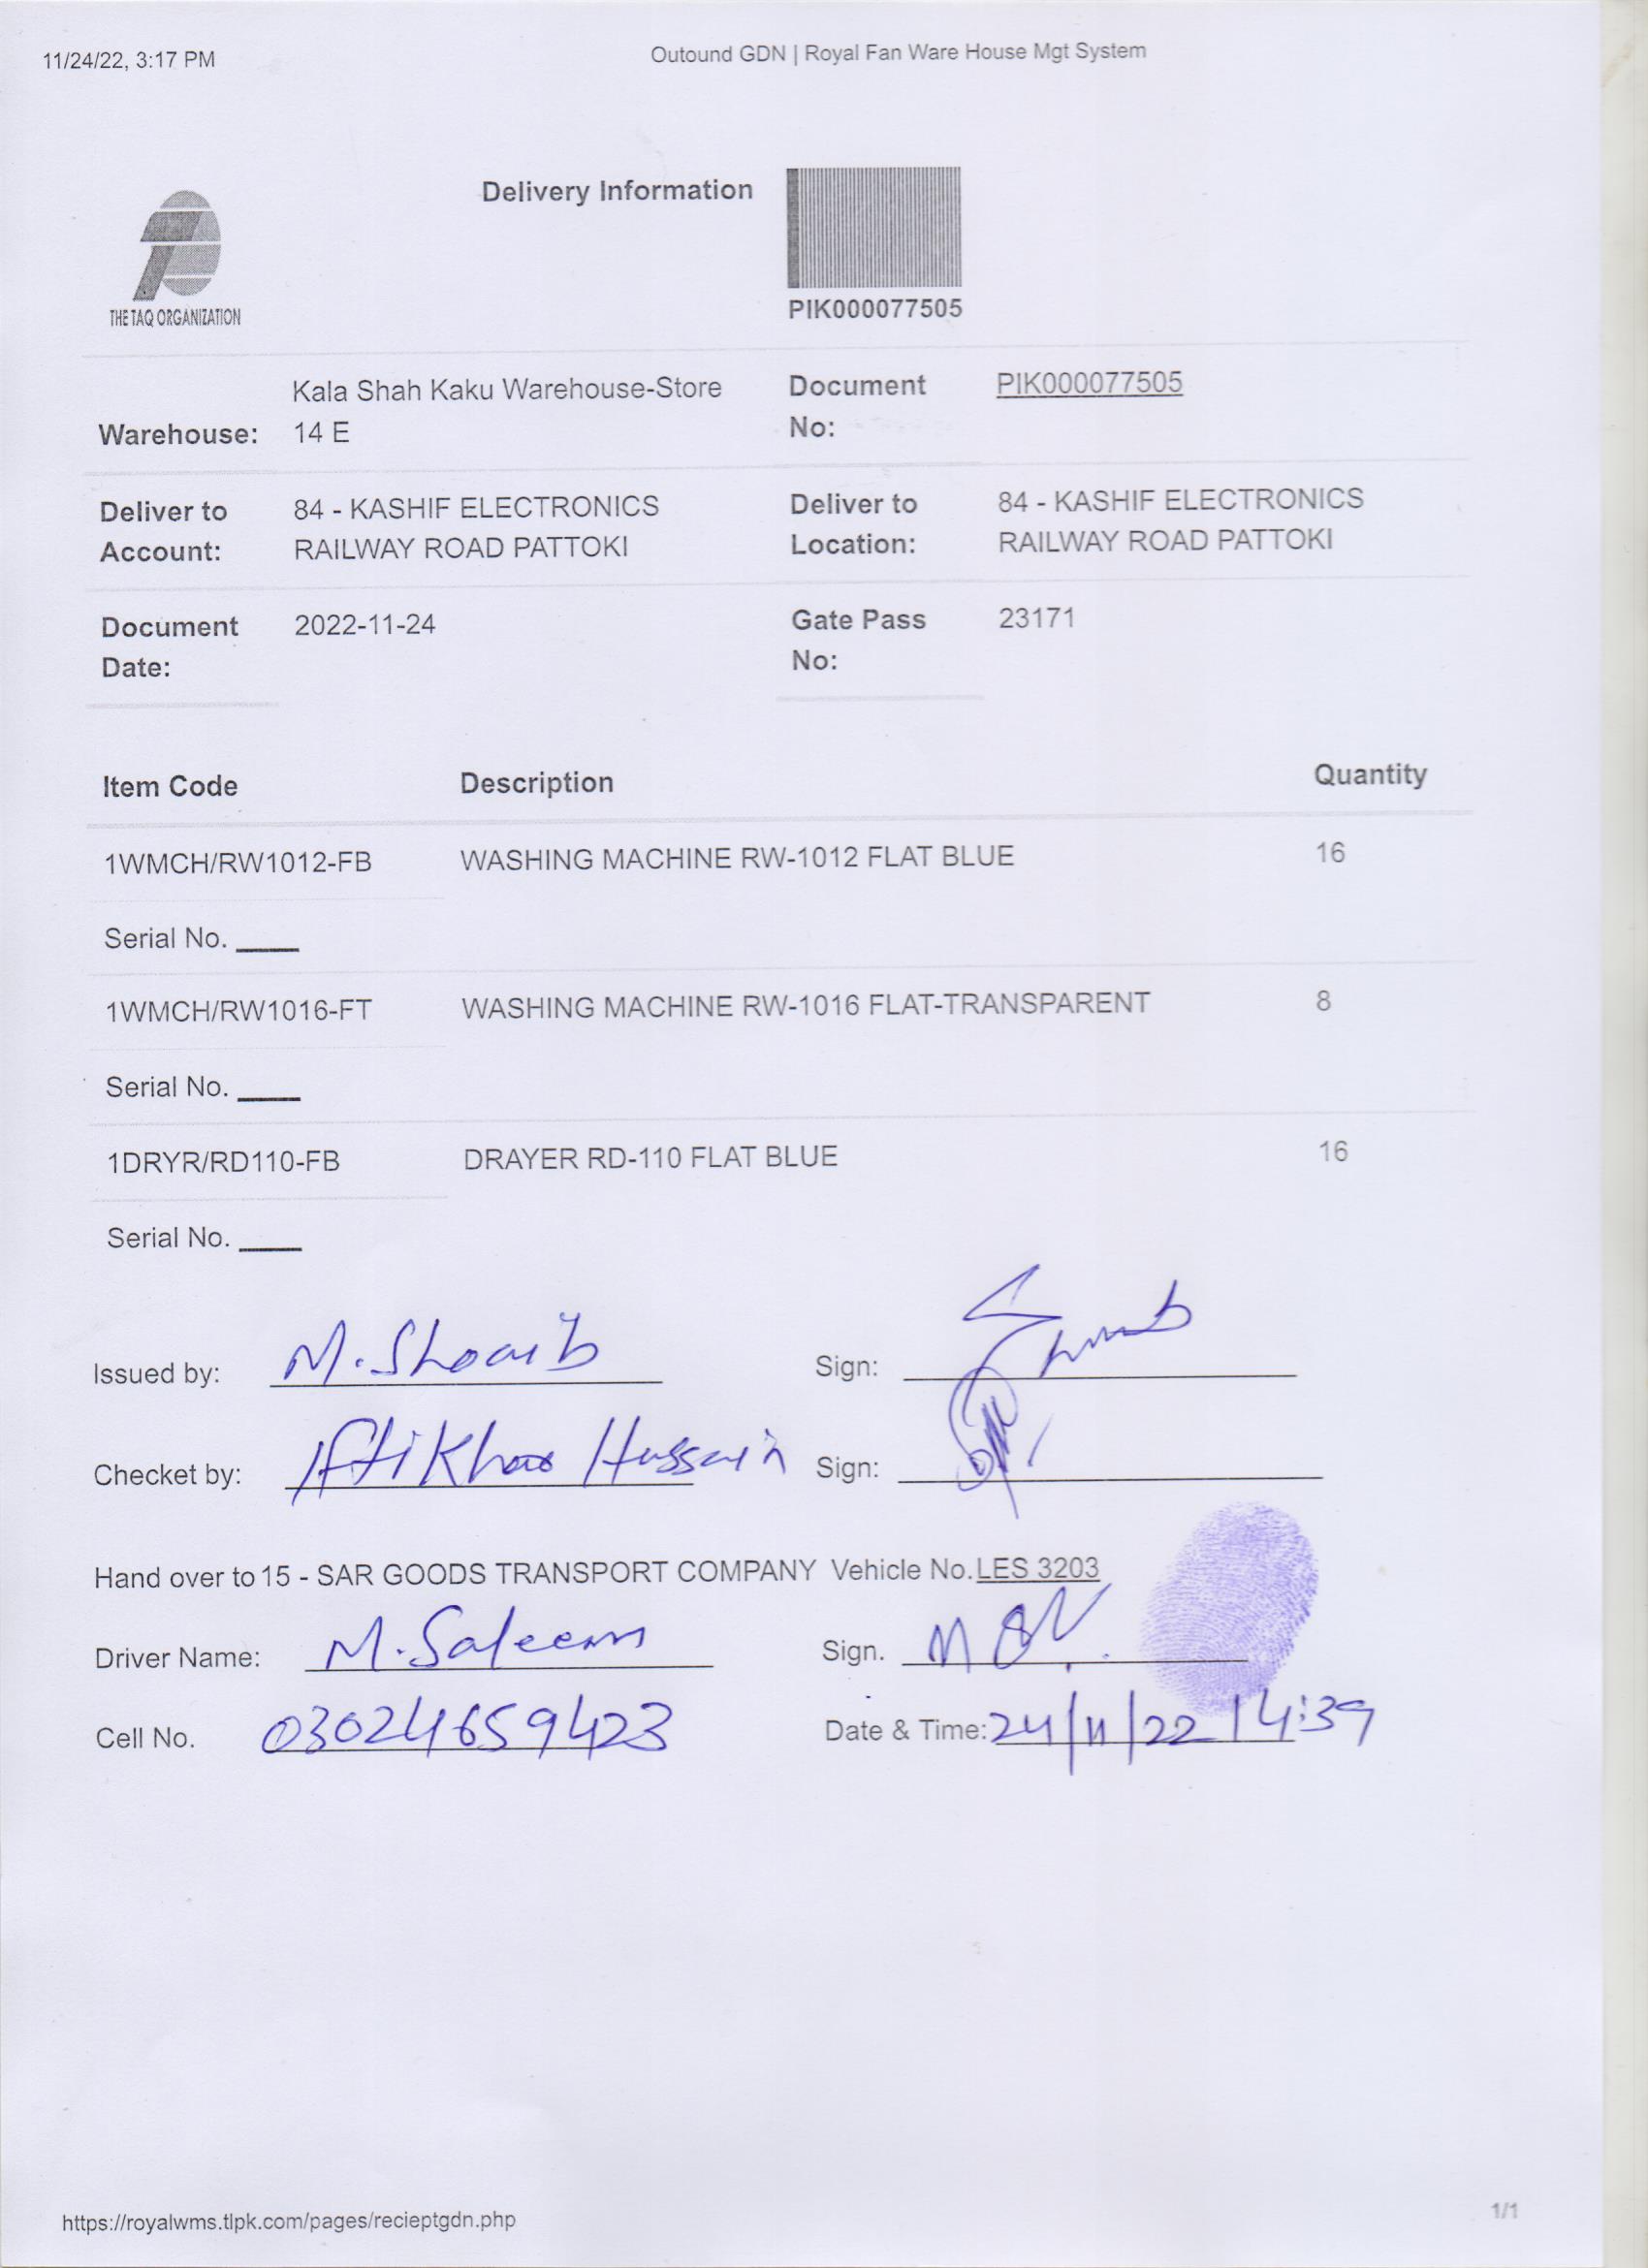 11/24/22, 3:17 PM
Outound GDN | Royal Fan Ware House Mgt System
Delivery Information
THE TAQ ORGANIZATION
PIK000077505
Kala Shah Kaku Warehouse-Store
Warehouse: 14 E
Document No: PIK000077505
Deliver to Account: 84 - KASHIF ELECTRONICS
RAILWAY ROAD PATTOKI
Deliver to Location: 84 - KASHIF ELECTRONICS
RAILWAY ROAD PATTOKI
Document Date: 2022-11-24
Gate Pass No: 23171
Item Code Description Quantity
1WMCH/RW1012-FB WASHING MACHINE RW-1012 FLAT BLUE 16
Serial No. ____
1WMCH/RW1016-FT WASHING MACHINE RW-1016 FLAT-TRANSPARENT 8
Serial No. ____
1DRYR/RD110-FB DRAYER RD-110 FLAT BLUE 16
Serial No. ____
Issued by: M. Shoaib Sign:
Checket by: Iftikhar Hussain Sign:
Hand over to 15 - SAR GOODS TRANSPORT COMPANY Vehicle No. LES 3203
Driver Name: M. Saleem Sign.
Cell No. 03024659423 Date & Time: 24/11/22 / 4:39
https://royalwms.tlpk.com/pages/recieptgdn.php
1/1